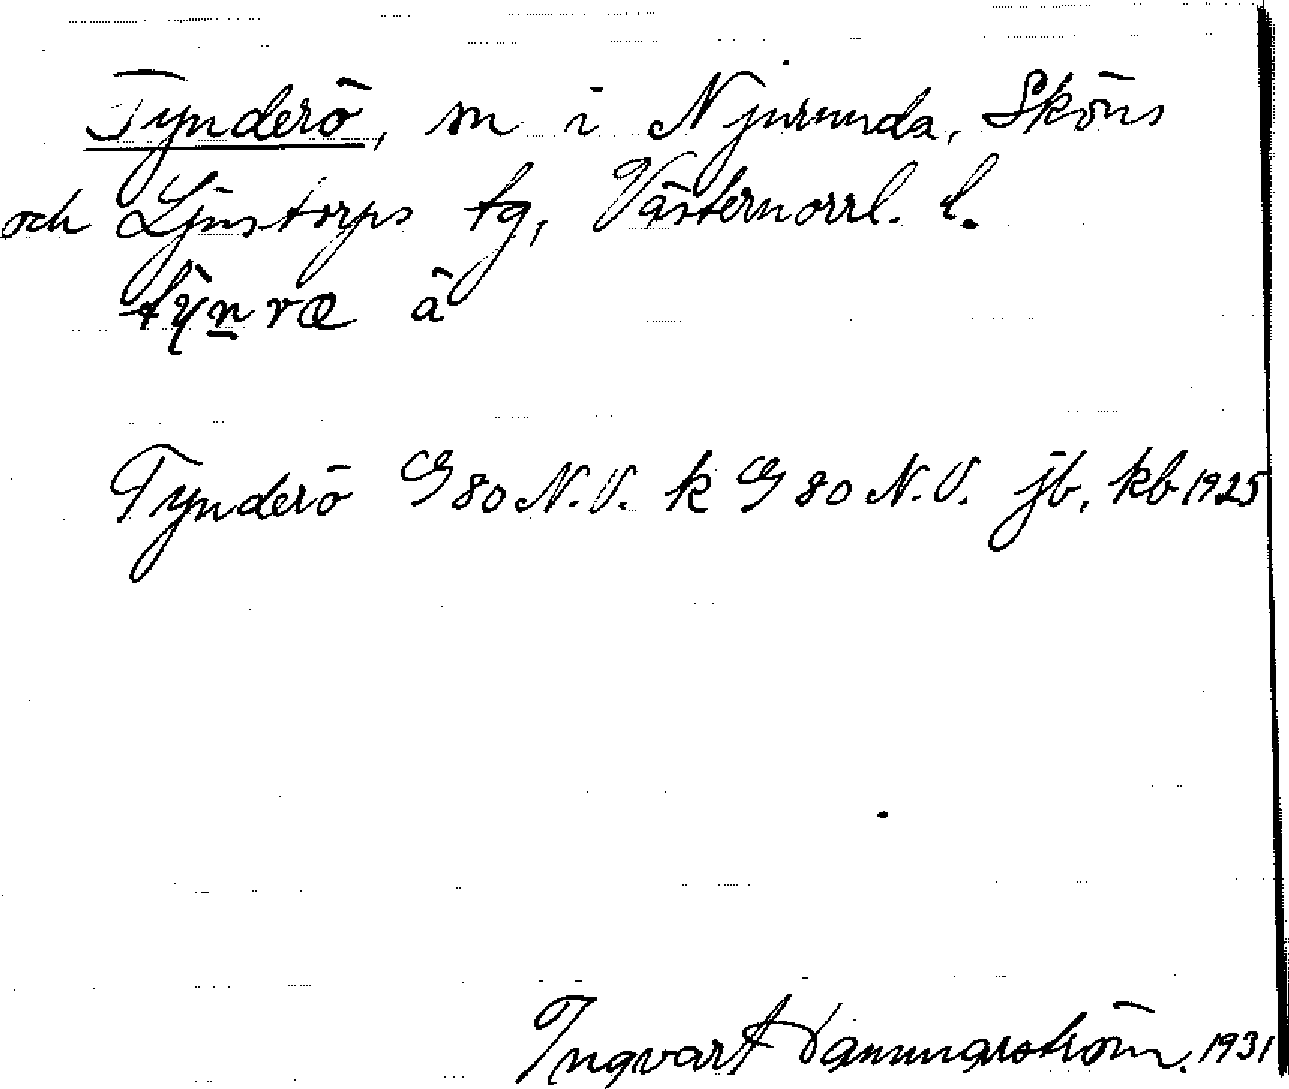 Tynderö, sn i Njurunda, Sköns
och Ljustorps tg, Västernorrl. l.
tỳnræ ä
Tynderö G 80 N.V. k G 80 N.V. jb, kb 1925
Ingvart Dammarström. 1931